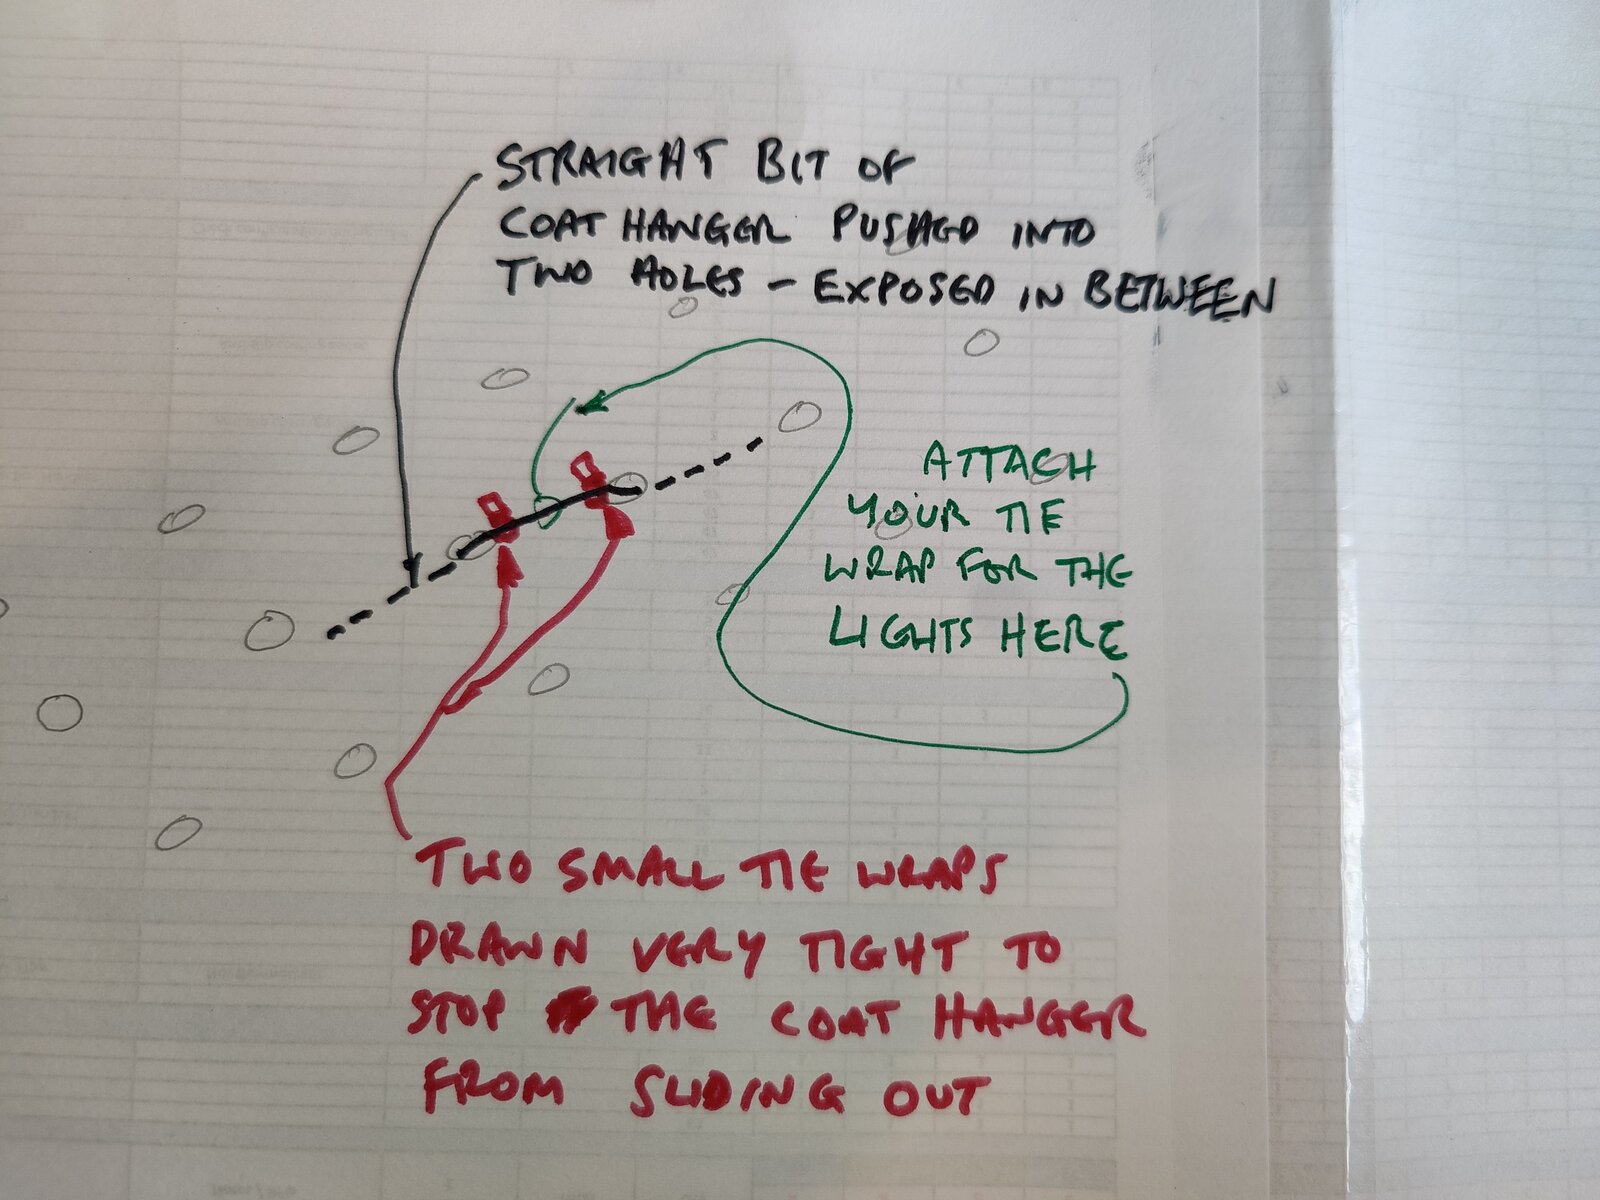 STRAIGHT BIT OF
COAT HANGER PUSHED INTO
TWO HOLES - EXPOSED IN BETWEEN
ATTACH
YOUR TIE
WRAP FOR THE
LIGHTS HERE
TWO SMALL TIE WRAPS
DRAWN VERY TIGHT TO
STOP THE COAT HANGER
FROM SLIDING OUT